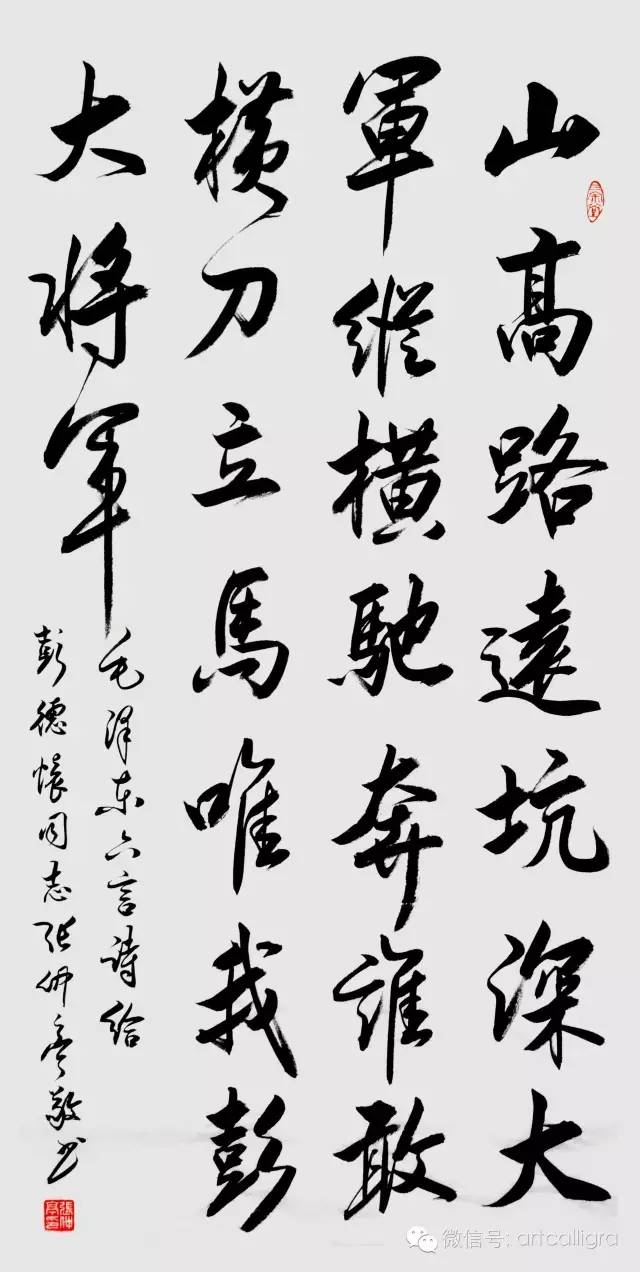 山高路遠坑深大
軍縱橫馳奔誰敢
橫刀立馬唯我彭
大將軍
毛澤东六言詩給
彭德懷同志张仲亭敬书
微信号: artcalligra